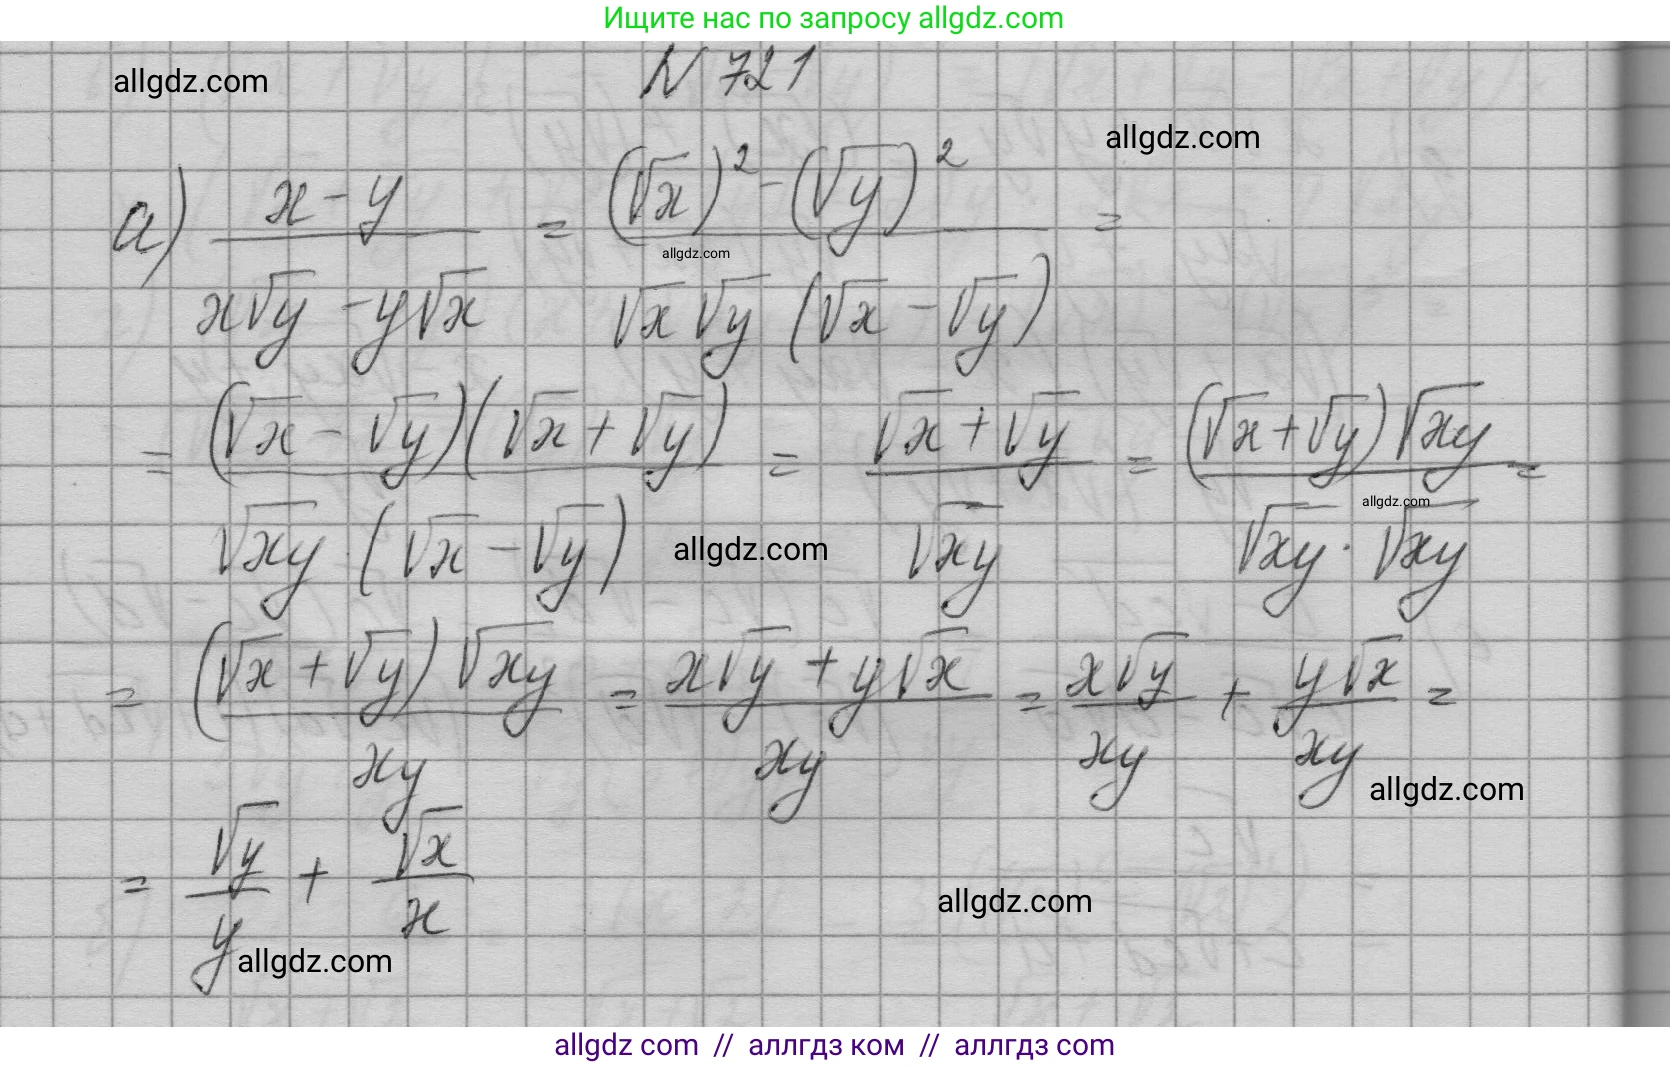 Ищите нас по запросу allgdz.com
N 721
allgdz.com
allgdz.com
а) (x - y)/(x√y - y√x) = ((√x)² - (√y)²)/(√x √y (√x - √y)) =
allgdz.com
= ((√x - √y)(√x + √y))/(√xy (√x - √y)) = (√x + √y)/√xy = ((√x + √y) √xy)/(√xy · √xy) =
allgdz.com
allgdz.com
= ((√x + √y) √xy)/xy = (x√y + y√x)/xy = x√y/xy + y√x/xy =
allgdz.com
= √y/y + √x/x
allgdz.com
allgdz.com
allgdz com // аллгдз ком // аллгдз com